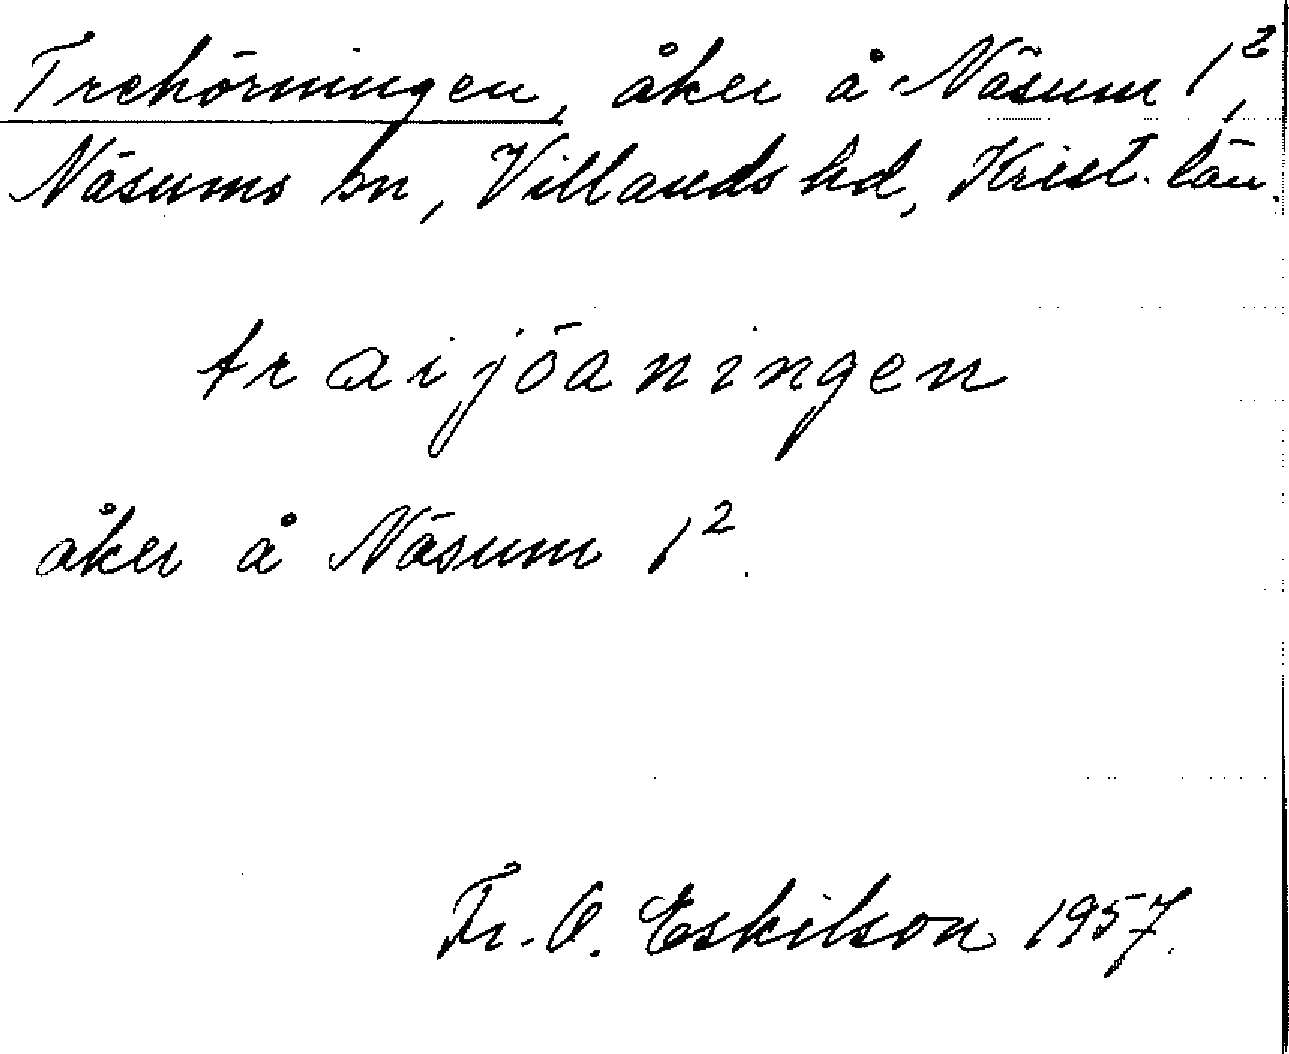 Trehörningen, åker å Näsum 1²,
Näsums sn, Villands hd, Krist. län.
traijöaningen
åker å Näsum 1².
Fr. O. Eskilson 1957.